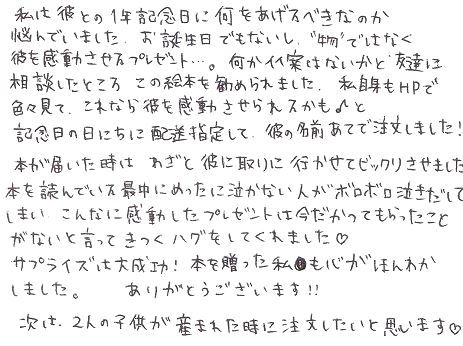 私は彼との1年記念日に何をあげるべきなのか
悩んでいました。お誕生日でもないし、"物"ではなく
彼を感動させるプレゼント…。何かイイ案はないかと友達に
相談したところ この絵本を勧められました。私自身もHPで
色々見て、これなら彼を感動させられるかも♪と
記念日の日にちに配送指定して、彼の名前あてで注文しました!
本が届いた時は わざと彼に取りに行かせてビックリさせました
本を読んでいる最中にめったに泣かない人がボロボロ泣きだして
しまい こんなに感動したプレゼントは今だかつてもらったこと
がないと言って きつくハグをしてくれました♡
サプライズは大成功!本を贈った私も心がほんわか
しました。 ありがとうございます!!
次は、2人の子供が産まれた時に注文したいと思います♡